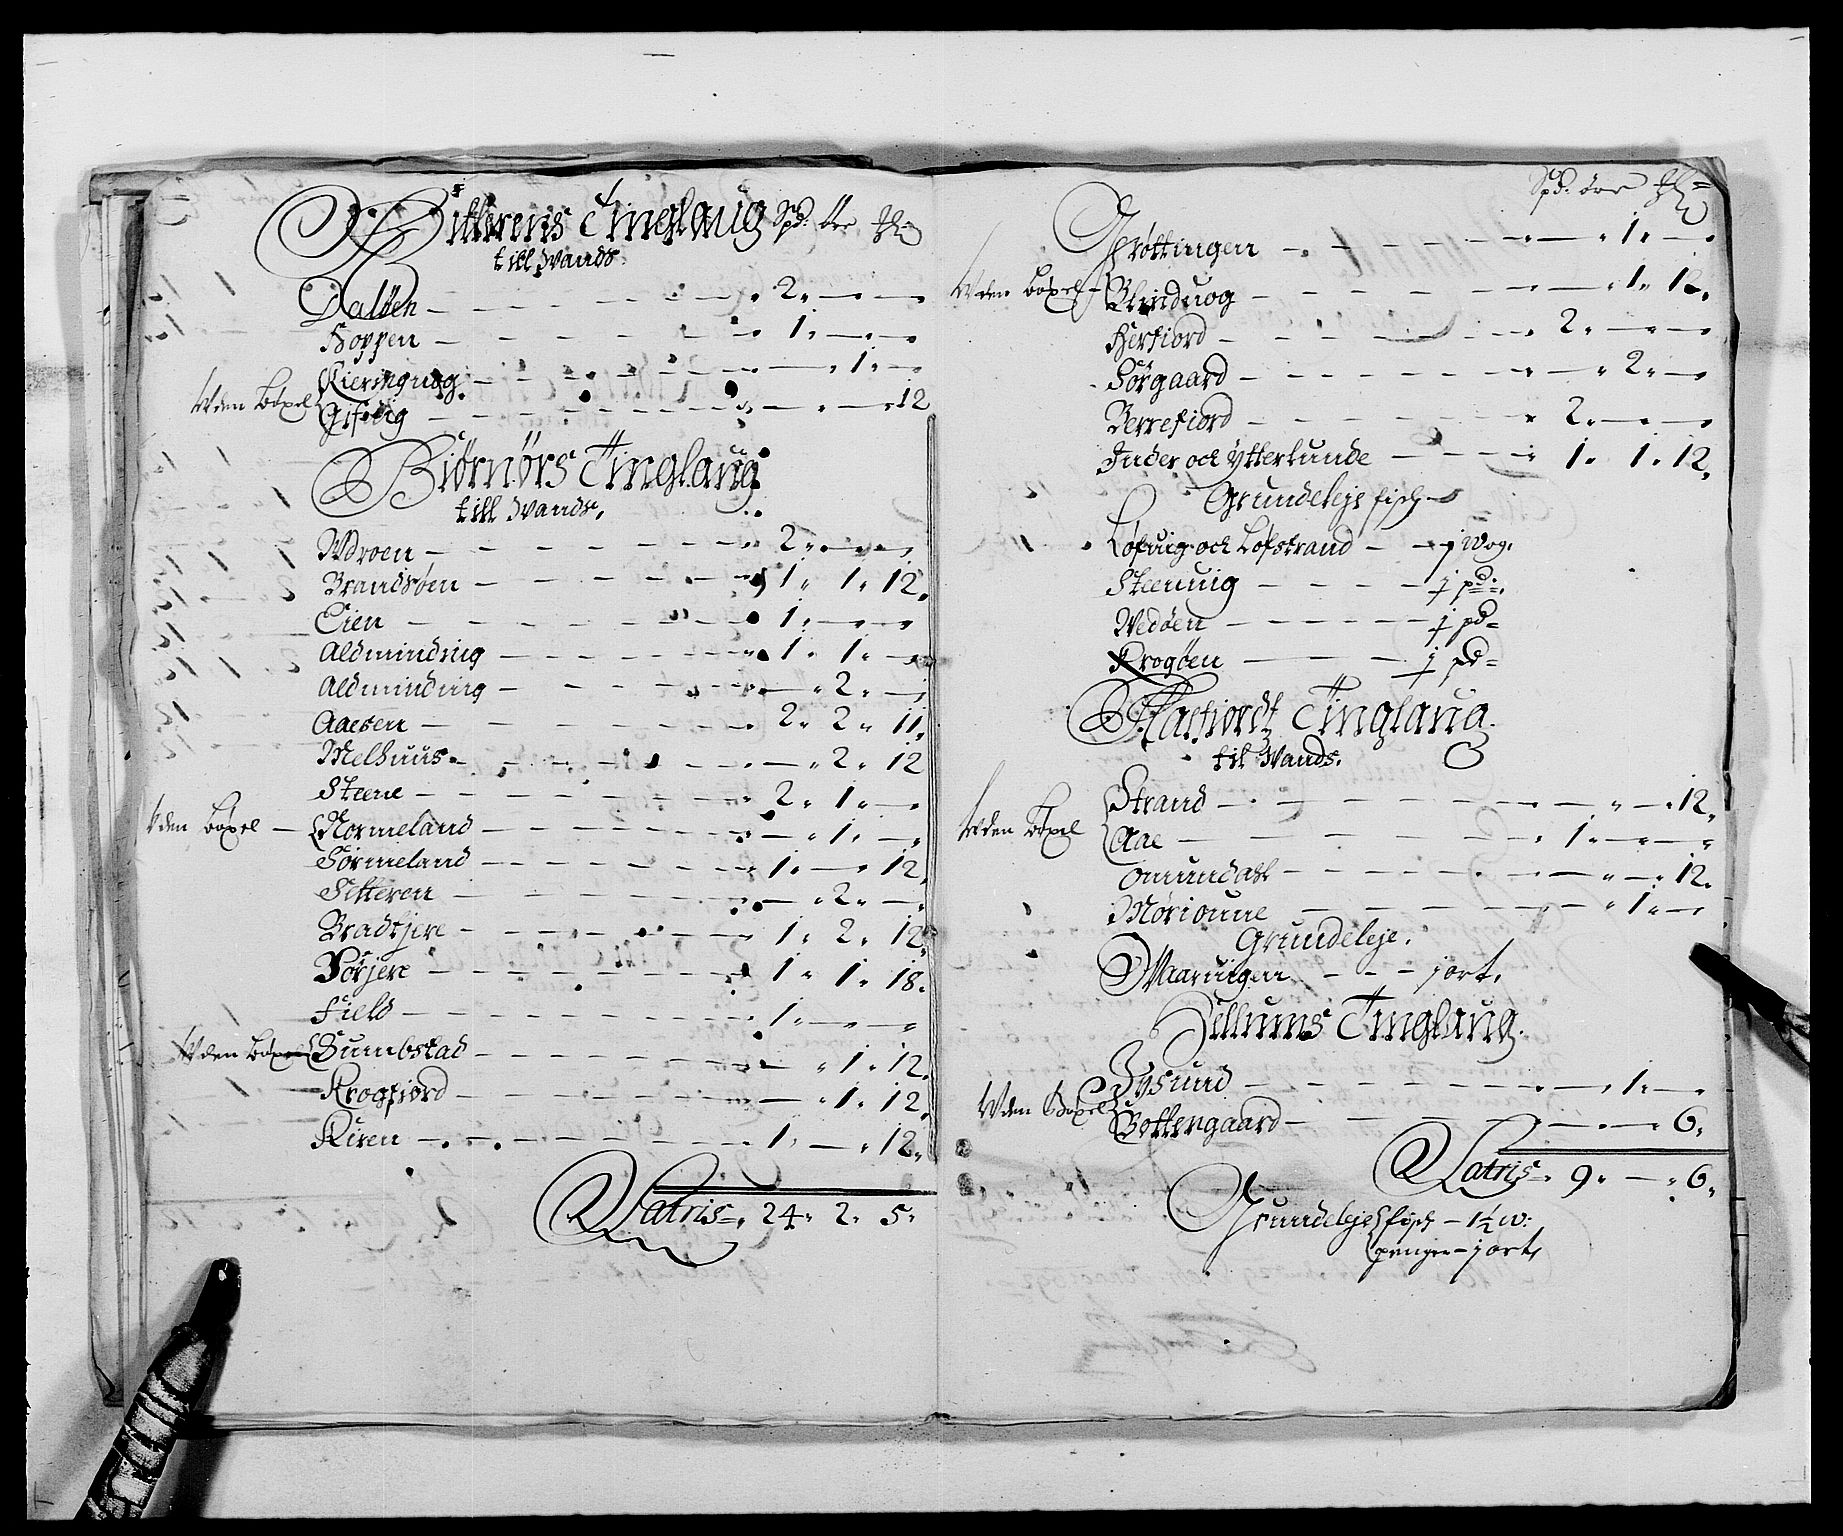 Hitterens Tinglaug Spd: öre
till Wands.
Dalöen - 2 " - " -
Hoppen - 1 " - " -
Kieringuog - " 1 " -
Uden Böxel Gifsvig - " - " 12
Biörnörs Tinglaug
till Wands.
Udroen - 2 " - " -
Brandsöen - 1 " 1 " 12
Eien - 1 " - " -
Aldminding - 1 " 1 " -
Aldminding - " 2 " -
Aaesen - 2 " 2 " 11
Melhuus - " 2 " 12
Steene - 2 " 1 " -
Uden Böxel - Normeland - " 1 " -
Sörmeland - 1 " - 12
Setteren - " 2 " -
Bradtjere - 1 " 2 " 12
Sörjere - 1 " 1 " 18
Field - 1 " - " -
Uden Böxel Sumbstad - " 1 " 12
Krogfiord - " 1 " 12
Kiren - 1 " - " 12
Latris 24 " 2 " 5
Spd: öre
Grøttingen - " 1 " -
Uden Böxel - Blinduog - " 1 " 12
Herfiord - 2 " - " -
Sörgaard - " 2 " -
Berrefiord - 2 " - " -
Inder och Ytterkunde - 1 " 1 " 12
Grundeleje fisch
Löfuig och Löfstrand - j Wog.
Steenuig - j pd:
Wedöen - j pd
Krogöen - j pd
Aasfiordt Tinglaug.
til Wands.
Strand - " - 12
Uden Böxel Aae - 1 " - " -
Omundahl - " - 12
Mörioune - " 1 " -
Grundeleje.
Waaruigen - j ort.
Zillums Tinglaug.
Bysund - " 1 " -
Uden Böxel Bottengaard - " - 6
Latris 9 " - " 6
Grundeleje fisch - 1½ w:
penger - j ort